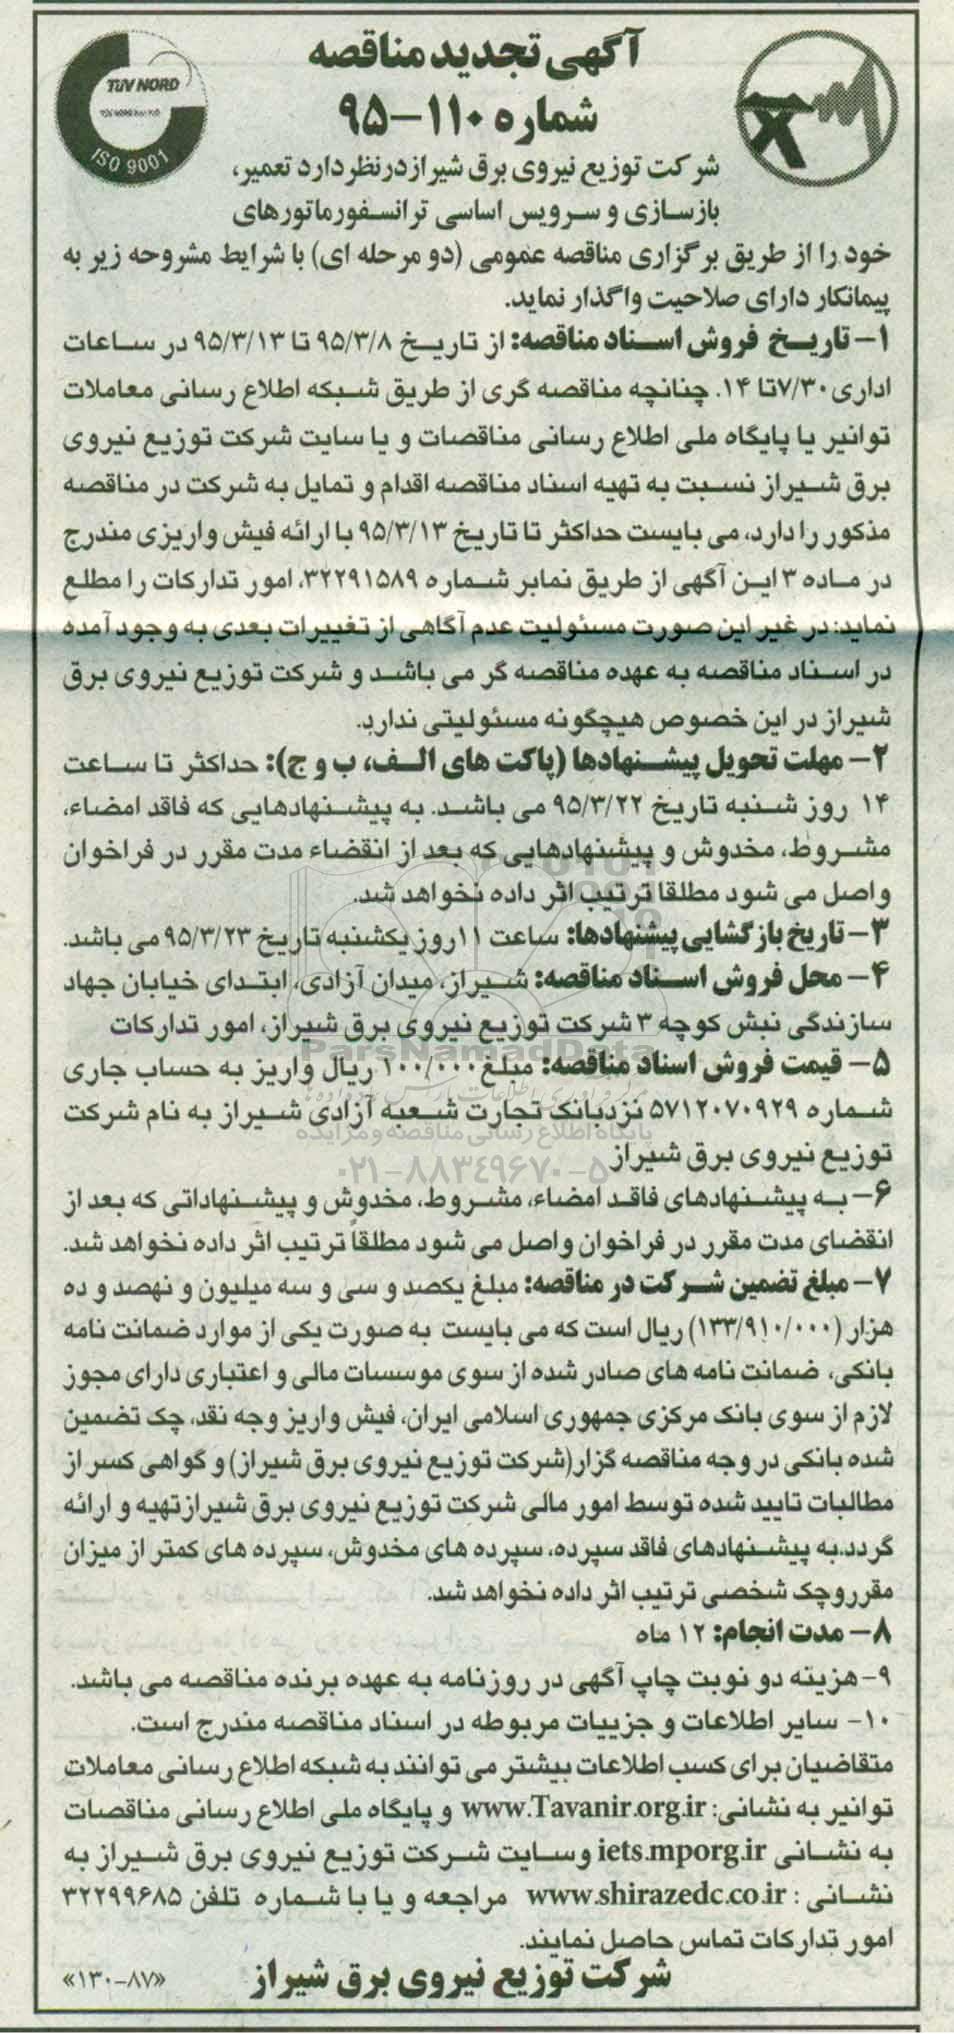 آگهی تجدید مناقصه
شماره ۱۱۰-۹۵
TÜV NORD
ISO 9001
شرکت توزیع نیروی برق شیراز در نظر دارد تعمیر،
بازسازی و سرویس اساسی ترانسفورماتورهای
خود را از طریق برگزاری مناقصه عمومی (دو مرحله ای) با شرایط مشروحه زیر به
پیمانکار دارای صلاحیت واگذار نماید.
۱- تاریخ فروش اسناد مناقصه: از تاریخ ۹۵/۳/۸ تا ۹۵/۳/۱۳ در ساعات
اداری ۷/۳۰ تا ۱۴. چنانچه مناقصه گری از طریق شبکه اطلاع رسانی معاملات
توانیر یا پایگاه ملی اطلاع رسانی مناقصات و یا سایت شرکت توزیع نیروی
برق شیراز نسبت به تهیه اسناد مناقصه اقدام و تمایل به شرکت در مناقصه
مذکور را دارد، می بایست حداکثر تا تاریخ ۹۵/۳/۱۳ با ارائه فیش واریزی مندرج
در ماده ۳ این آگهی از طریق نمابر شماره ۳۲۲۹۱۵۸۹، امور تدارکات را مطلع
نماید: در غیر این صورت مسئولیت عدم آگاهی از تغییرات بعدی به وجود آمده
در اسناد مناقصه به عهده مناقصه گر می باشد و شرکت توزیع نیروی برق
شیراز در این خصوص هیچگونه مسئولیتی ندارد.
۲- مهلت تحویل پیشنهادها (پاکت های الف، ب و ج): حداکثر تا ساعت
۱۴ روز شنبه تاریخ ۹۵/۳/۲۲ می باشد. به پیشنهادهایی که فاقد امضاء،
مشروط، مخدوش و پیشنهادهایی که بعد از انقضاء مدت مقرر در فراخوان
واصل می شود مطلقا ترتیب اثر داده نخواهد شد.
۳- تاریخ بازگشایی پیشنهادها: ساعت ۱۱ روز یکشنبه تاریخ ۹۵/۳/۲۳ می باشد.
۴- محل فروش اسناد مناقصه: شیراز، میدان آزادی، ابتدای خیابان جهاد
سازندگی نبش کوچه ۳ شرکت توزیع نیروی برق شیراز، امور تدارکات
ParsNamadData
۵- قیمت فروش اسناد مناقصه: مبلغ ۱۰۰/۰۰۰ ریال واریز به حساب جاری
شماره ۵۷۱۲۰۷۰۹۲۹ نزد بانک تجارت شعبه آزادی شیراز به نام شرکت
پایگاه اطلاع رسانی مناقصه و مزایده
توزیع نیروی برق شیراز
۰۲۱-۸۸۳۴۹۶۷۰-۵
۶- به پیشنهادهای فاقد امضاء، مشروط، مخدوش و پیشنهاداتی که بعد از
انقضای مدت مقرر در فراخوان واصل می شود مطلقاً ترتیب اثر داده نخواهد شد.
۷- مبلغ تضمین شرکت در مناقصه: مبلغ یکصد و سی و سه میلیون و نهصد و ده
هزار (۱۳۳/۹۱۰/۰۰۰) ریال است که می بایست به صورت یکی از موارد ضمانت نامه
بانکی، ضمانت نامه های صادر شده از سوی موسسات مالی و اعتباری دارای مجوز
لازم از سوی بانک مرکزی جمهوری اسلامی ایران، فیش واریز وجه نقد، چک تضمین
شده بانکی در وجه مناقصه گزار (شرکت توزیع نیروی برق شیراز) و گواهی کسر از
مطالبات تایید شده توسط امور مالی شرکت توزیع نیروی برق شیراز تهیه و ارائه
گردد. به پیشنهادهای فاقد سپرده، سپرده های مخدوش، سپرده های کمتر از میزان
مقرر و چک شخصی ترتیب اثر داده نخواهد شد.
۸- مدت انجام: ۱۲ ماه
۹- هزینه دو نوبت چاپ آگهی در روزنامه به عهده برنده مناقصه می باشد.
۱۰- سایر اطلاعات و جزییات مربوطه در اسناد مناقصه مندرج است.
متقاضیان برای کسب اطلاعات بیشتر می توانند به شبکه اطلاع رسانی معاملات
توانیر به نشانی: www.Tavanir.org.ir و پایگاه ملی اطلاع رسانی مناقصات
به نشانی iets.mporg.ir و سایت شرکت توزیع نیروی برق شیراز به
نشانی : www.shirazedc.co.ir مراجعه و یا با شماره تلفن ۳۲۲۹۹۶۸۵
امور تدارکات تماس حاصل نمایند.
شرکت توزیع نیروی برق شیراز
«۱۳۰-۸۷»